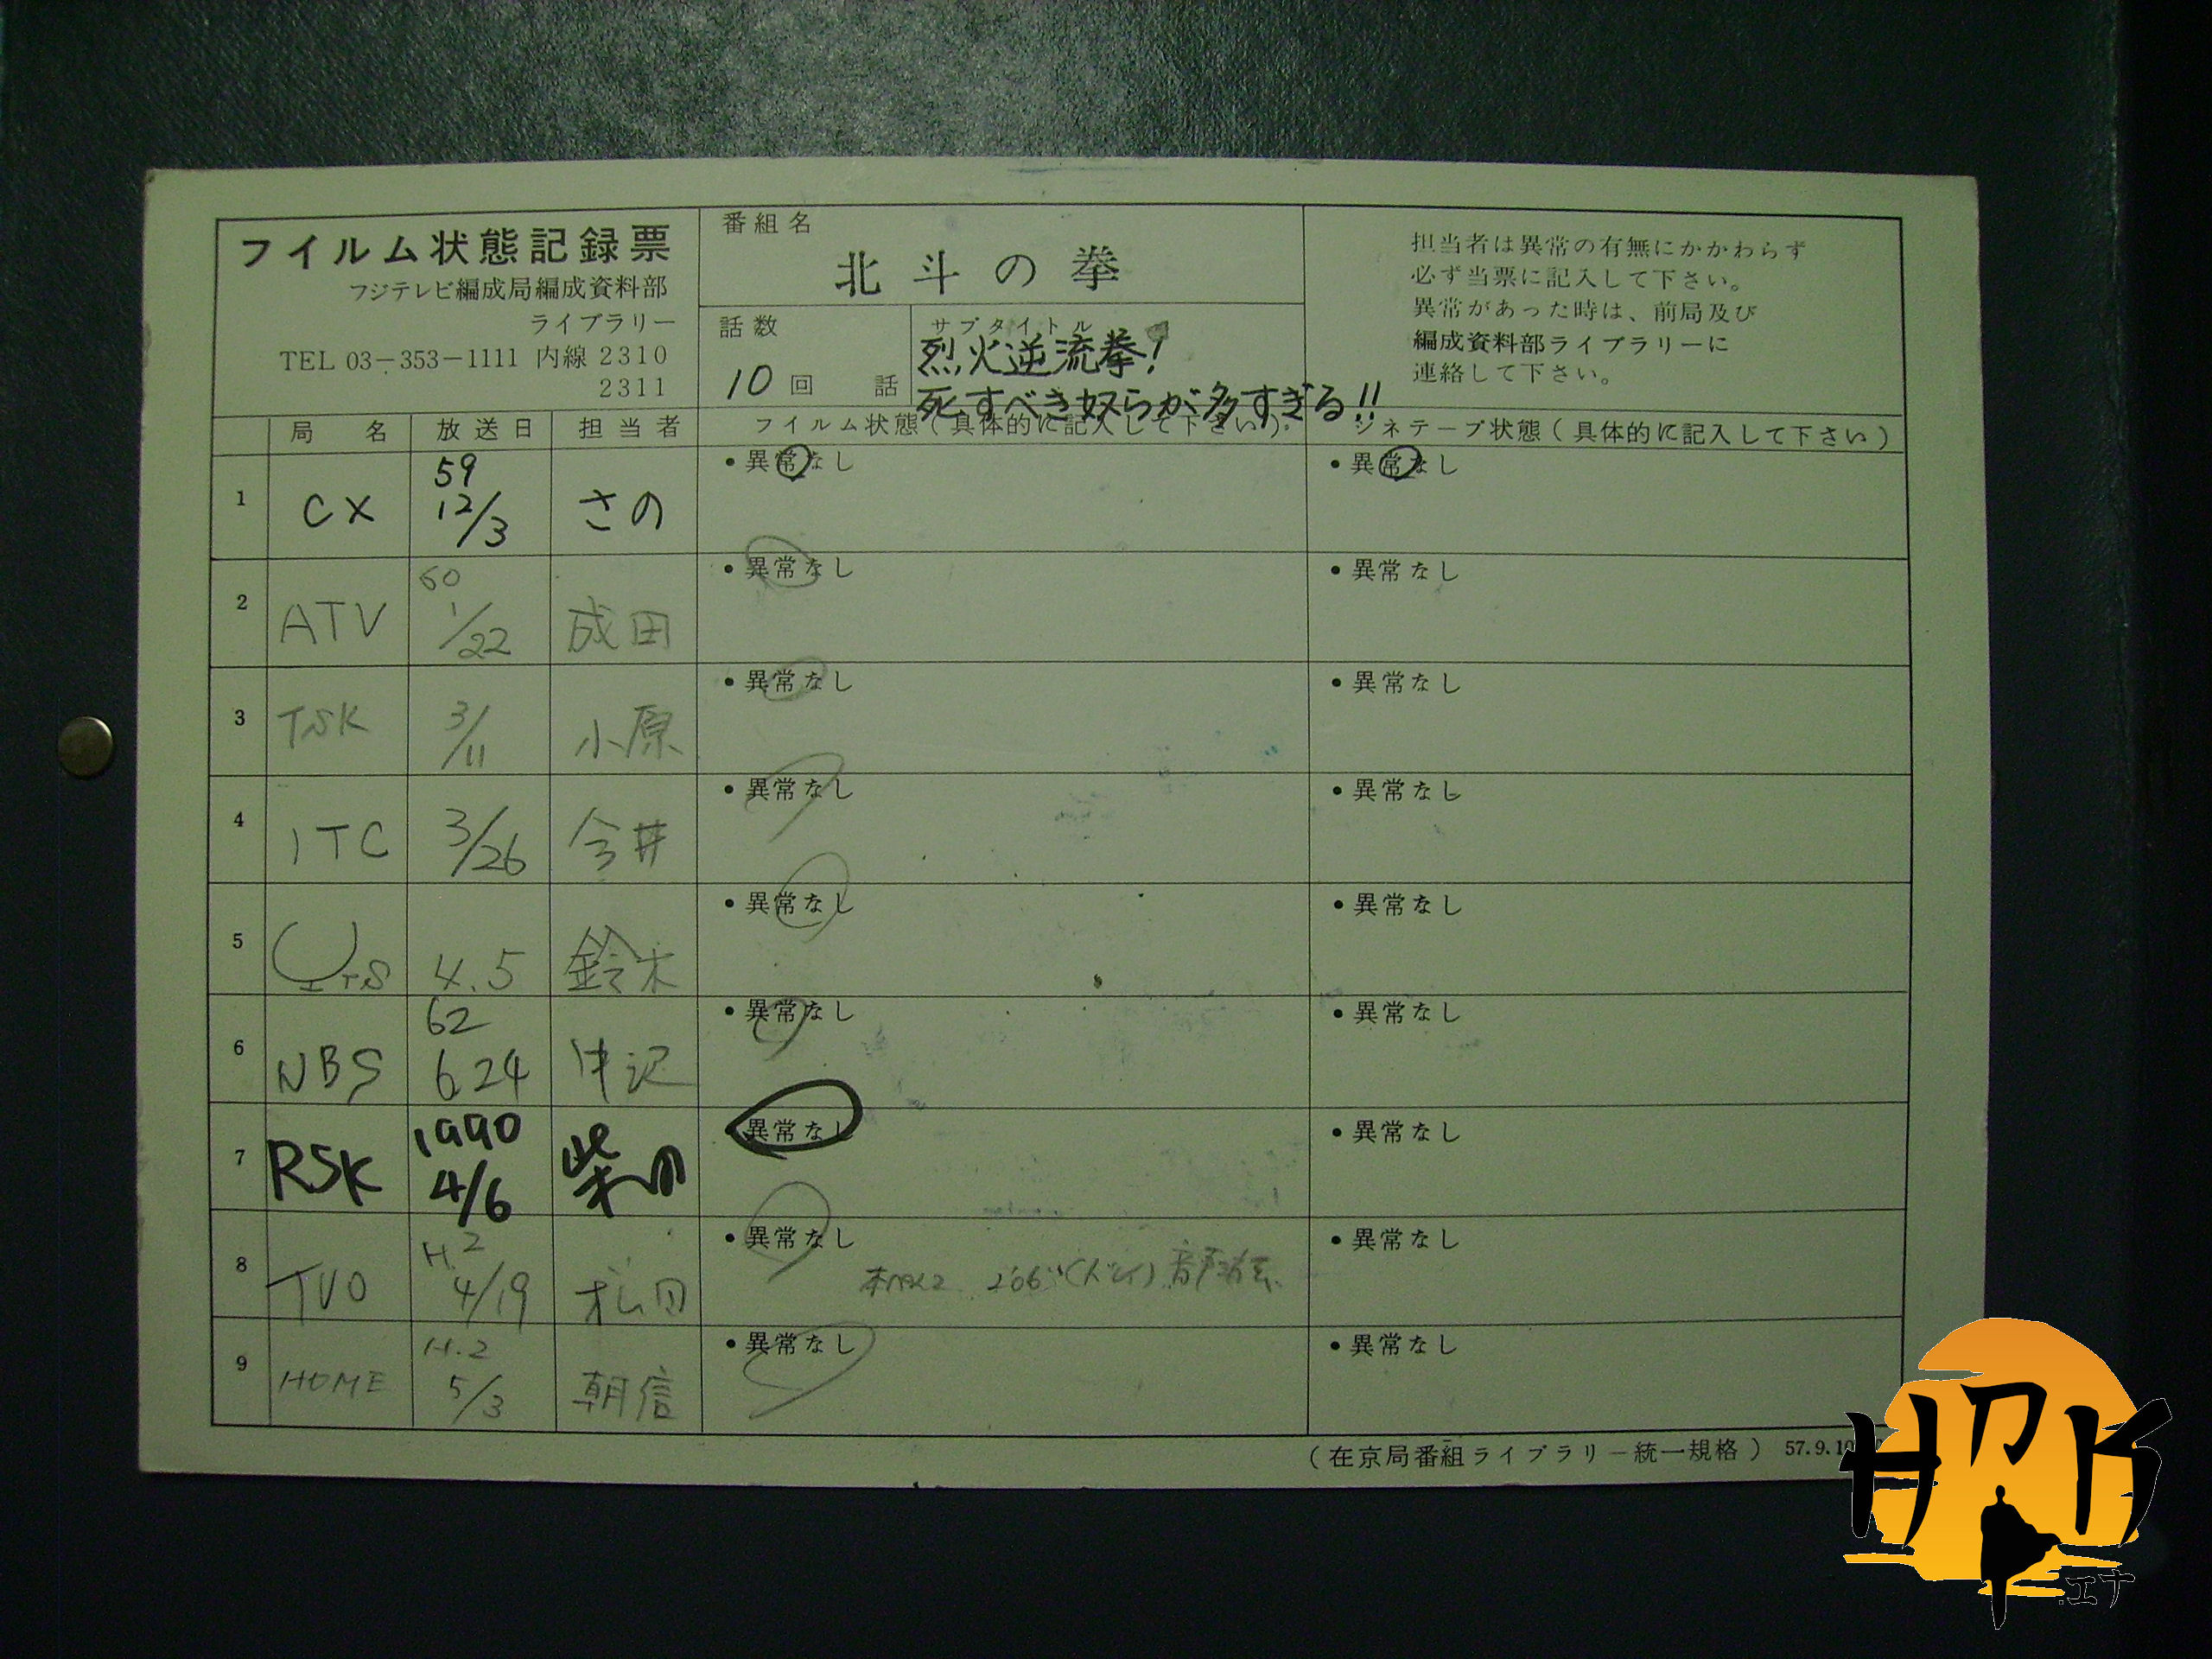 フイルム状態記録票
フジテレビ編成局編成資料部
ライブラリー
TEL 03-353-1111 内線 2310
2311
番組名
北斗の拳
話数
10 回 話
サブタイトル
烈火逆流拳!
死すべき奴らが多すぎる!!
担当者は異常の有無にかかわらず
必ず当票に記入して下さい。
異常があった時は、前局及び
編成資料部ライブラリーに
連絡して下さい。
局名 放送日 担当者 フイルム状態(具体的に記入して下さい) シネテープ状態(具体的に記入して下さい)
1 CX 59 12/3 さの ・異常なし ・異常なし
2 ATV 60 1/22 成田 ・異常なし ・異常なし
3 TSK 3/11 小原 ・異常なし ・異常なし
4 ITC 3/26 今井 ・異常なし ・異常なし
5 4.5 鈴木 ・異常なし ・異常なし
6 NBS 62 6.24 中沢 ・異常なし ・異常なし
7 RSK 1990 4/6 ・異常なし ・異常なし
8 TVO H.2 4/19 松田 ・異常なし ・異常なし
9 HOME H.2 5/3 朝信 ・異常なし ・異常なし
(在京局番組ライブラリー統一規格) 57.9.10
HNK
.エナ